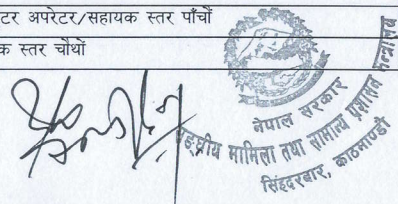 टर अपरेटर/सहायक स्तर पाँचौं
क स्तर चौथों
नेपाल सरकार
सङ्घीय मामिला तथा सामान्य प्रशासन मन्त्रालय
सिंहदरबार, काठमाण्डौ